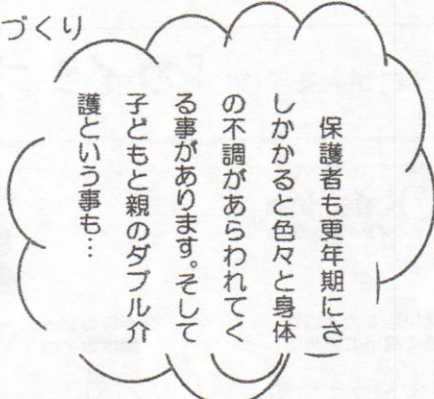 づくり
保護者も更年期にさ
しかかると色々と身体
の不調があらわれてく
る事があります。そして
子どもと親のダブル介
護という事も…